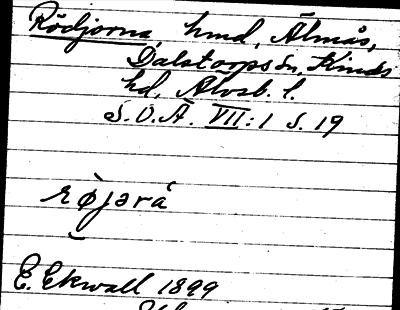 Rödjorna, hmd, Älmås,
Dalstorps sn, Kinds
hd, Älvsb. l.
S.O.Ä. VII:1 s. 19
røjərá
E. Ekwall 1899